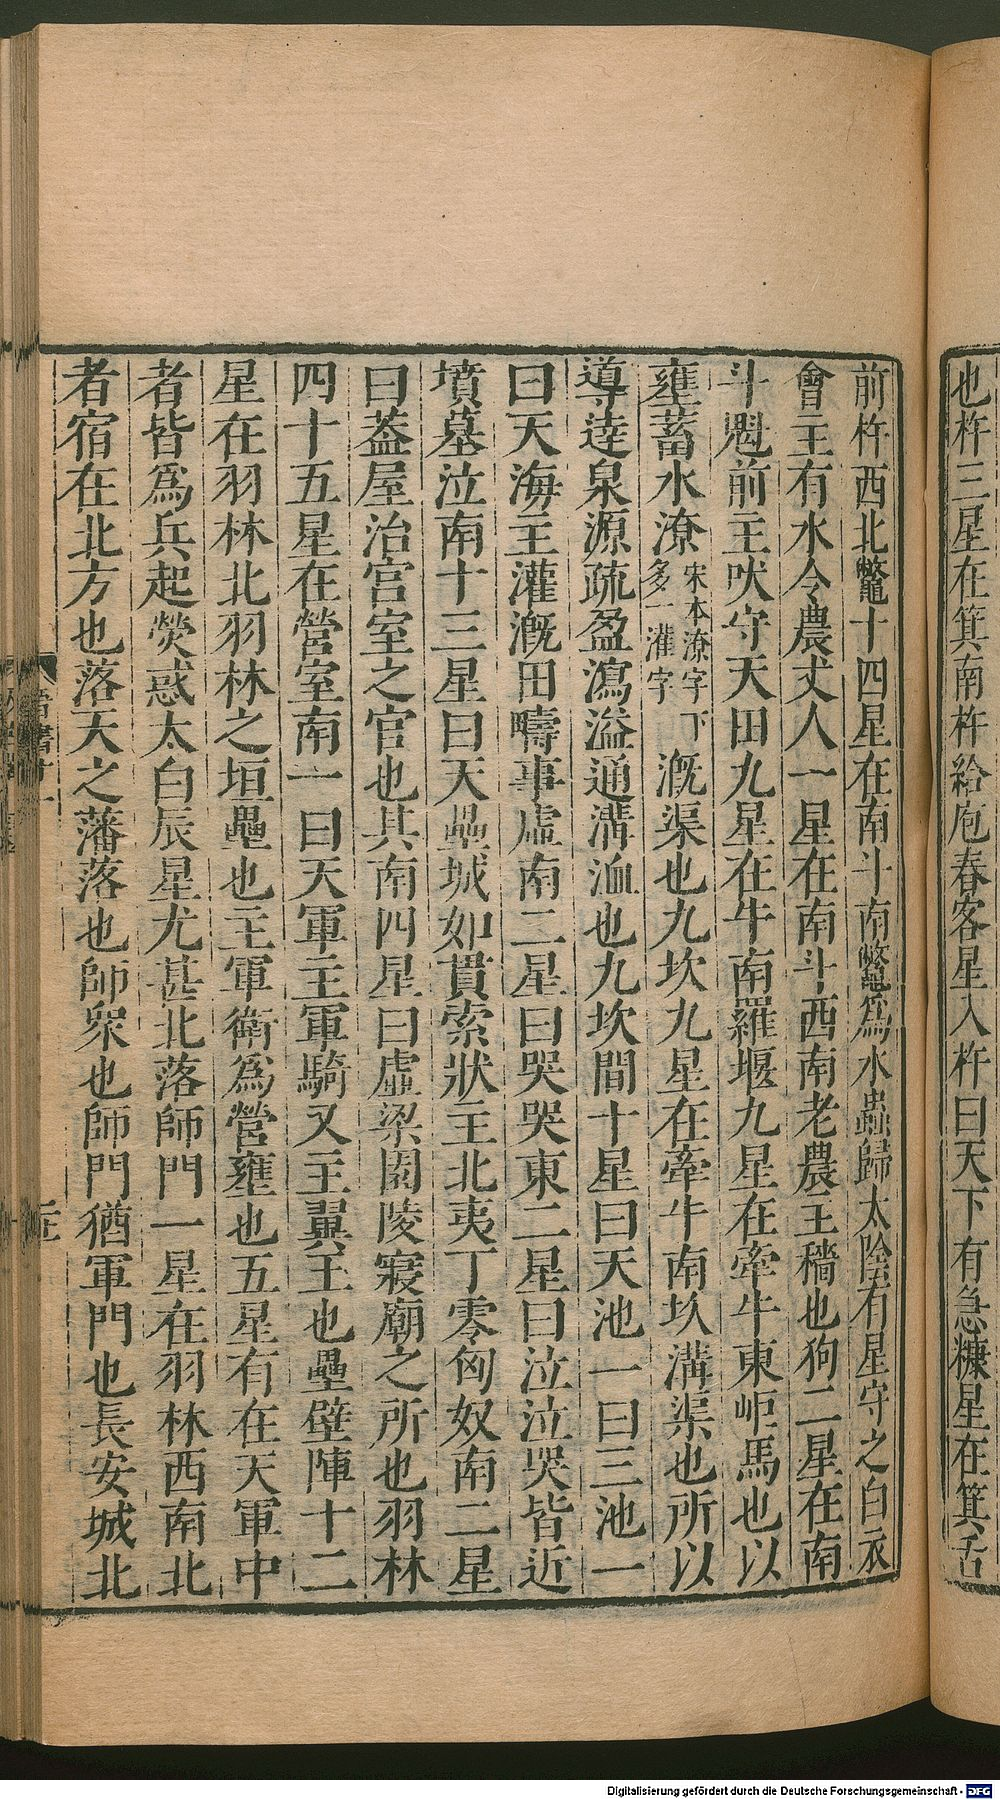 也杵三星在箕南杵給庖舂客星入杵臼天下有急糠星在箕舌
前杵西北鼈十四星在南斗南鼈爲水蟲歸太陰有星守之白衣
會主有水令農丈人一星在南斗西南老農主穡也狗二星在南
斗魁前主吠守天田九星在牛南羅堰九星在牽牛東岠馬也以
壅蓄水潦宋本潦字下多一灌字溉渠也九坎九星在牽牛南坎溝渠也所以
導達泉源疏盈瀉溢通溝洫也九坎間十星曰天池一曰三池一
曰天海主灌溉田疇事虛南二星曰哭哭東二星曰泣泣哭皆近
墳墓泣南十三星曰天壘城如貫索狀主北夷丁零匈奴南二星
曰蓋屋治宮室之官也其南四星曰虛梁園陵寢廟之所也羽林
四十五星在營室南一曰天軍主軍騎又主翼王也壘壁陣十二
星在羽林北羽林之垣壘也主軍衛爲營壅也五星有在天軍中
者皆爲兵起熒惑太白辰星尤甚北落師門一星在羽林西南北
者宿在北方也落天之藩落也師衆也師門猶軍門也長安城北
晉書十一
Digitalisierung gefördert durch die Deutsche Forschungsgemeinschaft - DFG